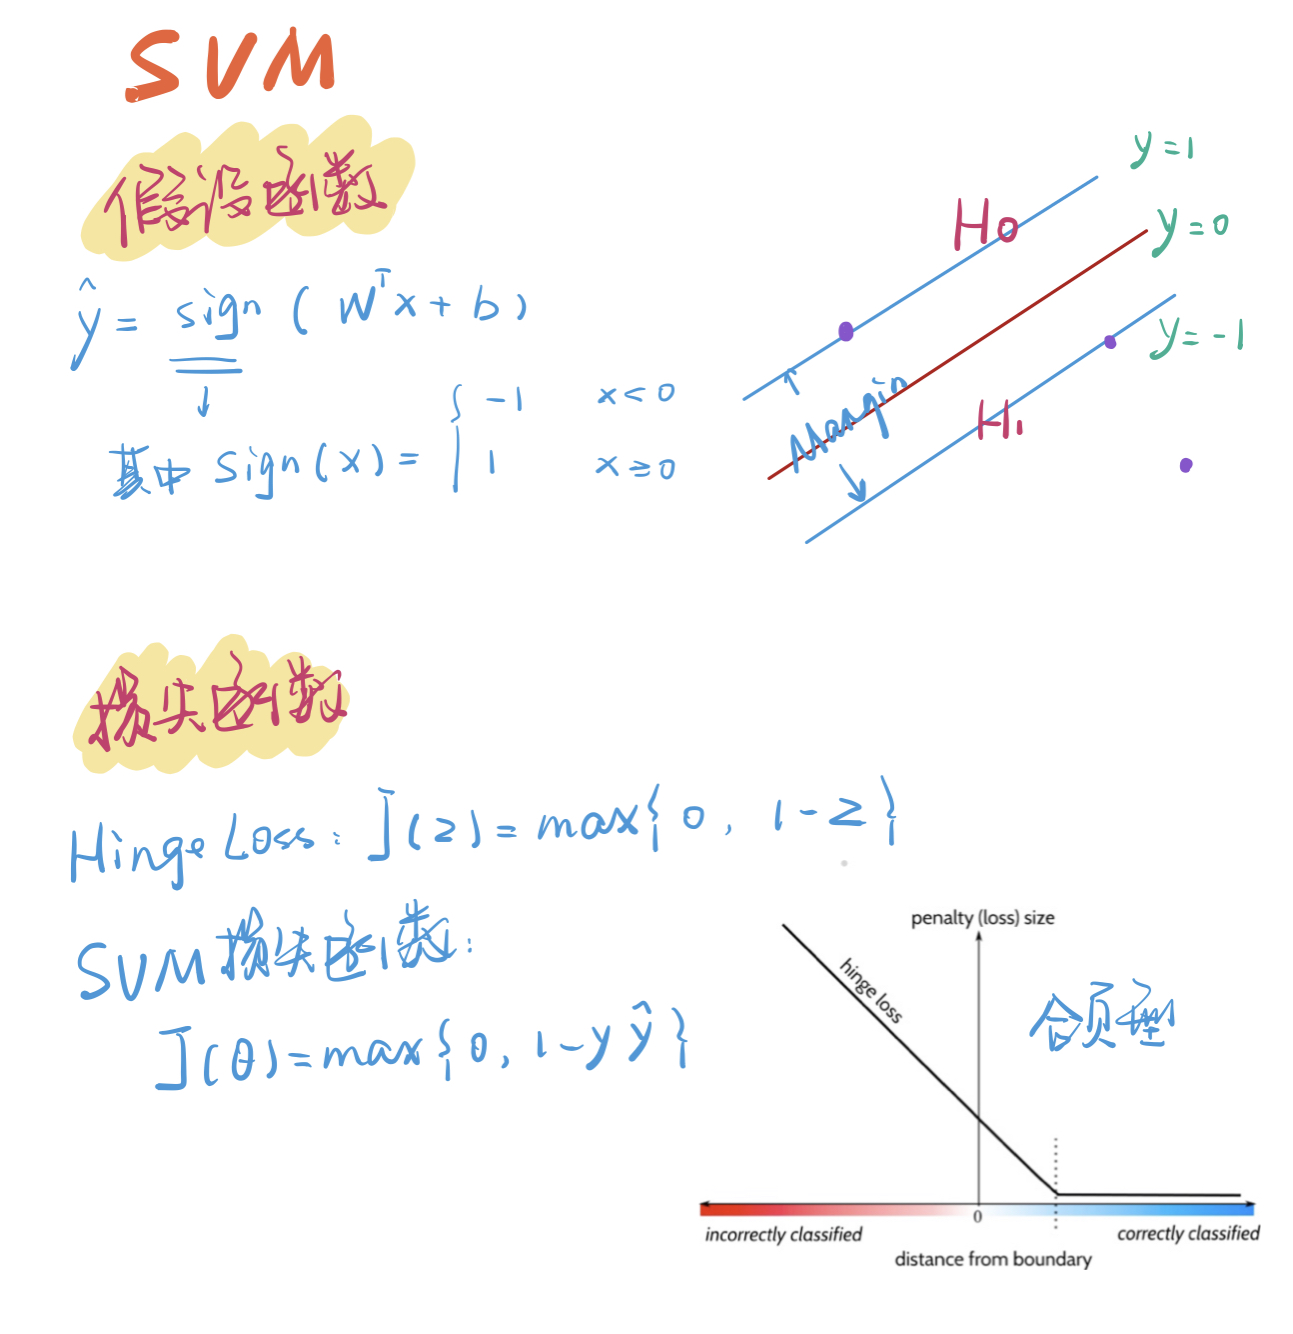 SVM
假设函数
ŷ = sign ( wᵀx + b )
其中 sign(x) = { -1 x < 0
1 x ≥ 0
y = 1
H0
y = 0
y = -1
Margin
H1
损失函数
Hinge Loss: J(z) = max{ 0, 1 - z }
SVM 损失函数:
J(θ) = max{ 0, 1 - y ŷ }
penalty (loss) size
hinge loss
合页型
0
incorrectly classified
correctly classified
distance from boundary